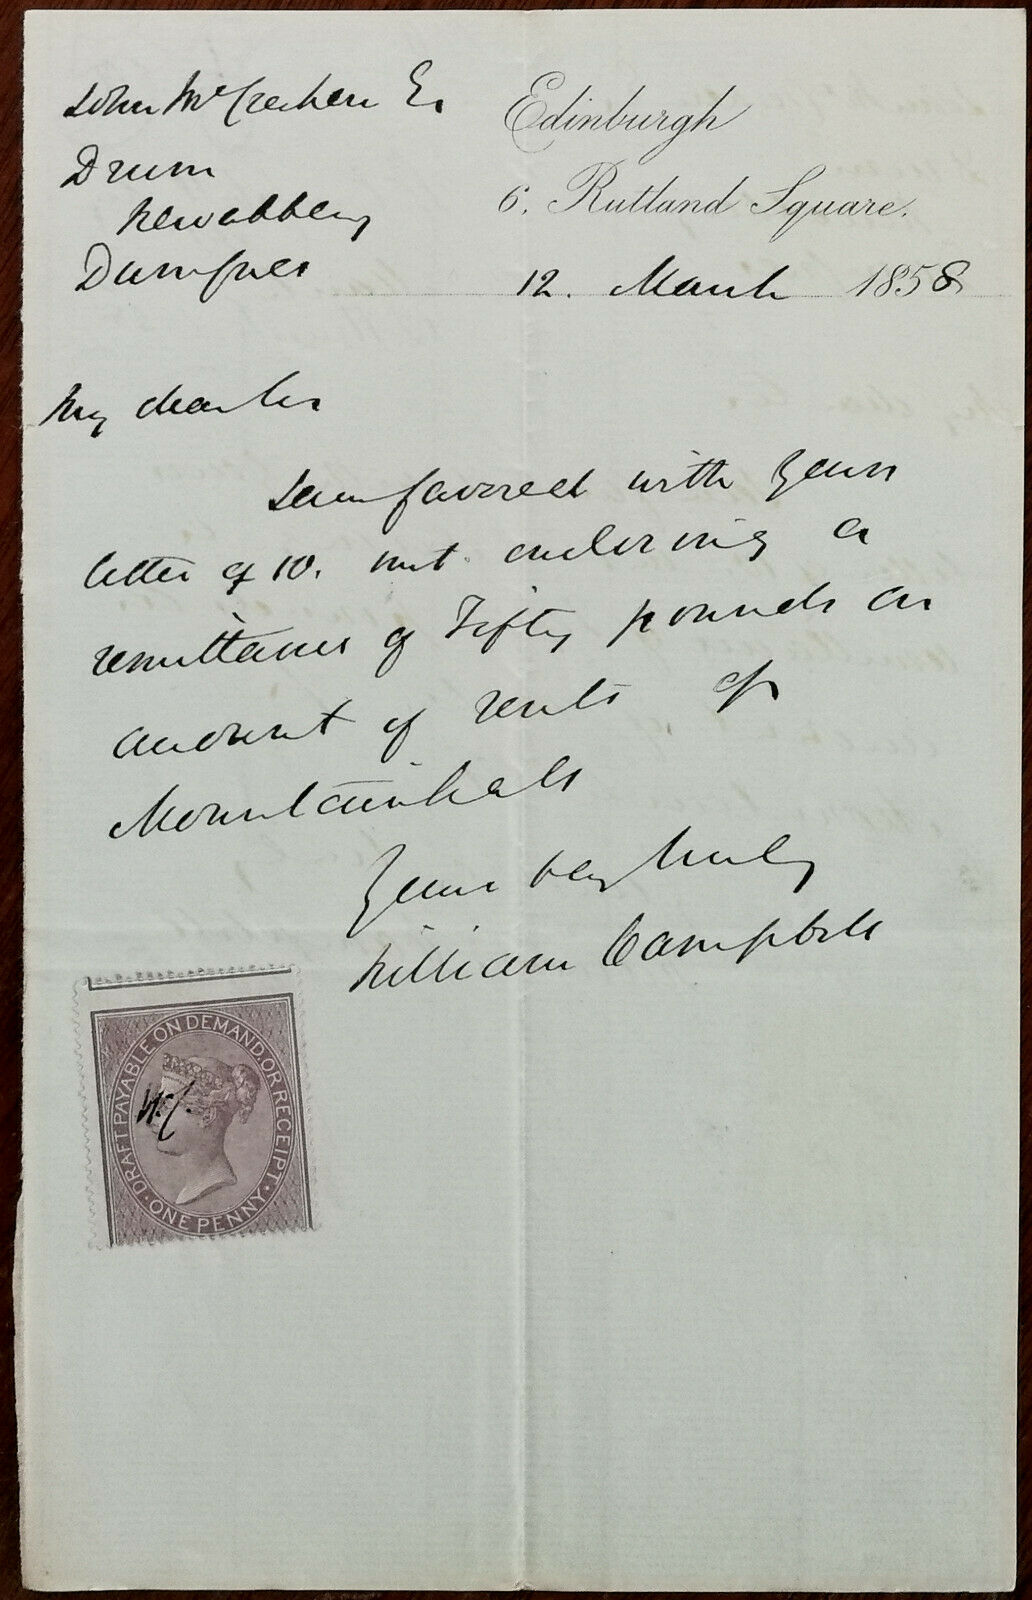 John McCrecken Es
Drum
Newabbey
Dumfries
Edinburgh
6, Rutland Square.
12. March 1858
My dear Sir
I am favored with your
letter of 10. inst. enclosing a
remittance of Fifty pounds on
account of rents of
Mountainhall
Yours very truly
William Campbell
DRAFT PAYABLE ON DEMAND, OR RECEIPT.
ONE PENNY
W.C.